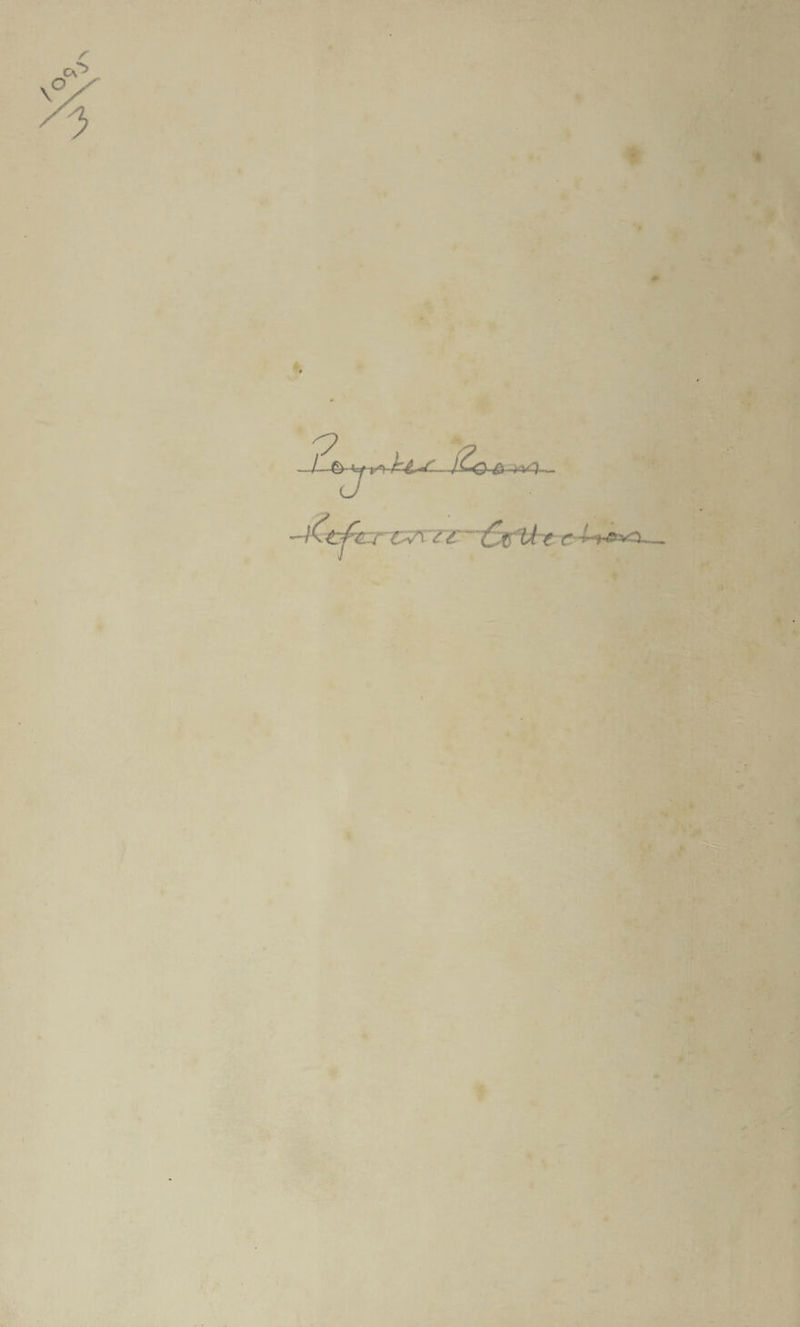 1095
/3
Poynter Room
Reference Collection